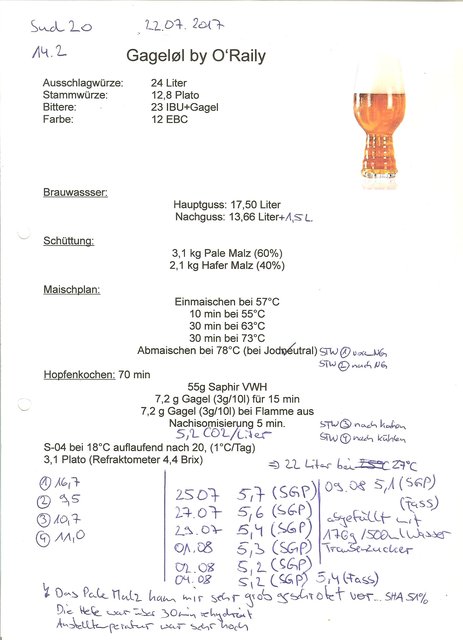 Sud 20 22.07.2017
14.2
Gageløl by O'Raily
Ausschlagwürze: 24 Liter
Stammwürze: 12,8 Plato
Bittere: 23 IBU+Gagel
Farbe: 12 EBC
Brauwassser:
Hauptguss: 17,50 Liter
Nachguss: 13,66 Liter +1,5L
Schüttung:
3,1 kg Pale Malz (60%)
2,1 kg Hafer Malz (40%)
Maischplan:
Einmaischen bei 57°C
10 min bei 55°C
30 min bei 63°C
30 min bei 73°C
Abmaischen bei 78°C (bei Jodneutral) STW ① vor NG
STW ② nach NG
Hopfenkochen: 70 min
55g Saphir VWH
7,2 g Gagel (3g/10l) für 15 min
7,2 g Gagel (3g/10l) bei Flamme aus
Nachisomisierung 5 min. STW ③ nach kochen
5,2 CO2/Liter STW ④ nach kühlen
S-04 bei 18°C auflaufend nach 20, (1°C/Tag)
3,1 Plato (Refraktometer 4,4 Brix) ⇒ 22 Liter bei 27°C
① 16,7
② 9,5
③ 10,7
④ 11,0
25.07 5,7 (SGP)
27.07 5,6 (SGP)
29.07 5,4 (SGP)
01.08 5,3 (SGP)
02.08 5,2 (SGP)
04.08 5,2 (SGP) 5,4 (Fass)
09.08 5,1 (SGP)
(Fass)
abgefüllt mit
176g/500ml Wasser
Traubenzucker
Das Pale Malz kam mir sehr grob geschrotet vor... SHA 51%
Die Hefe war über 30min rehydriert
Anstelltemperatur war sehr hoch